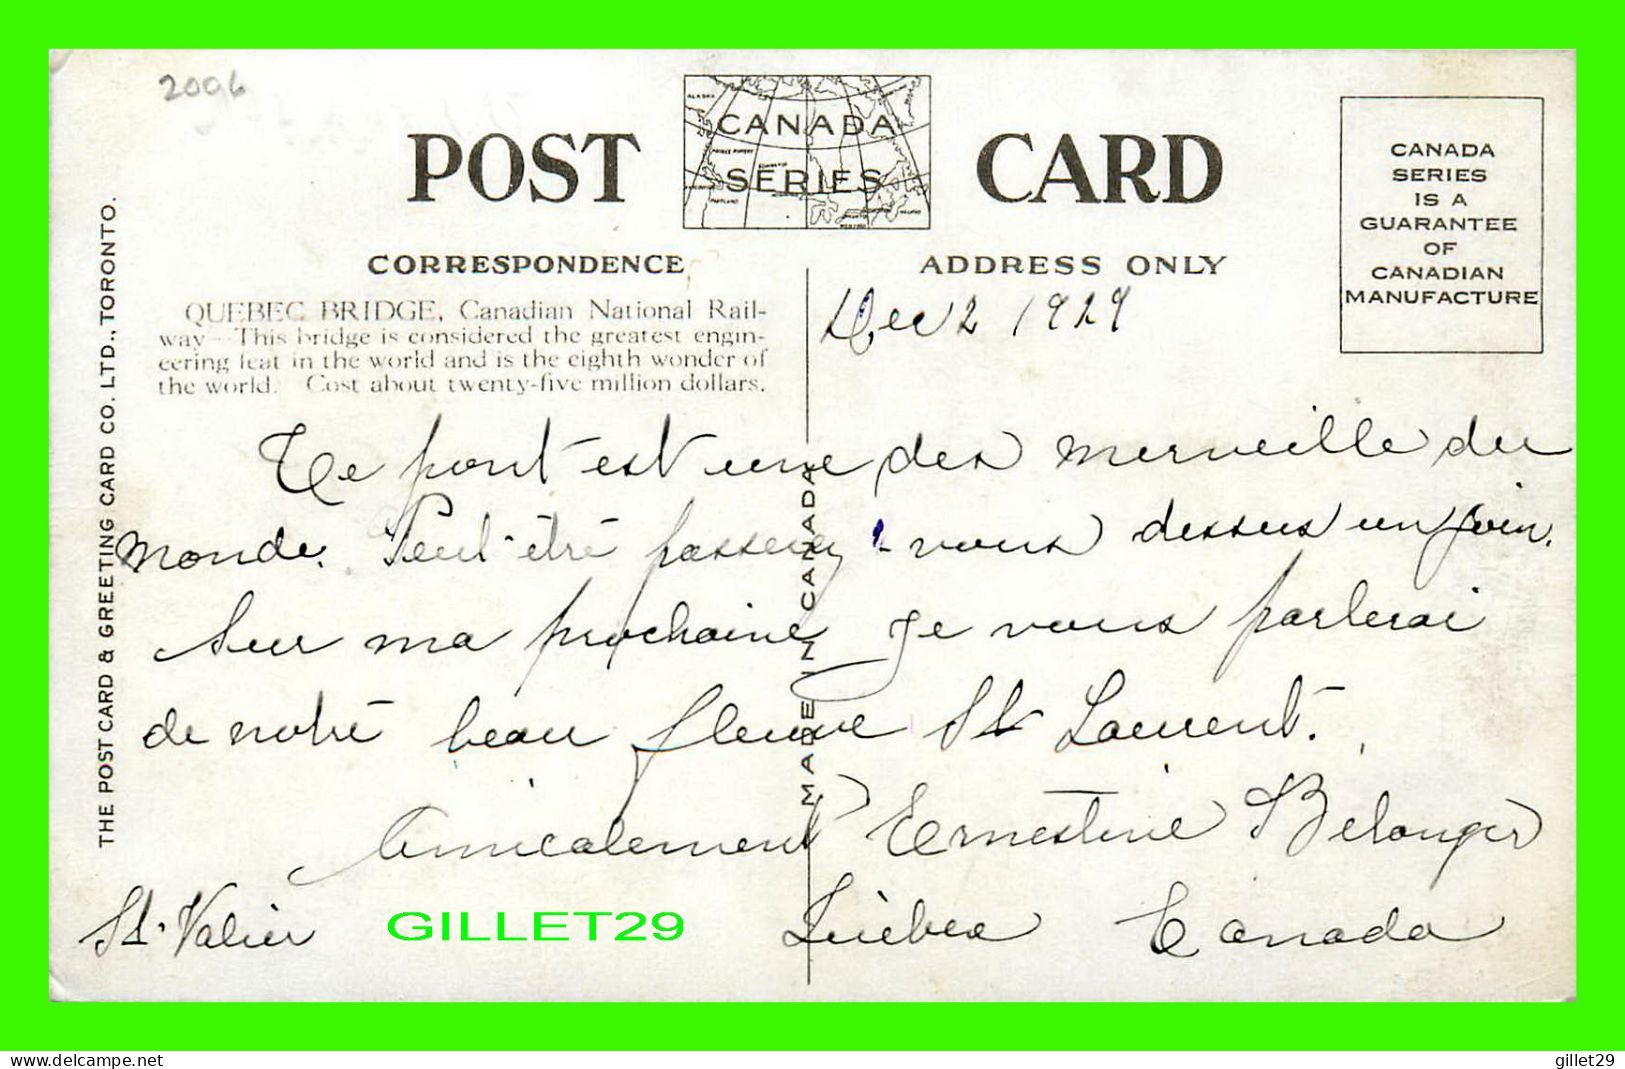 2096
POST CARD
CANADA
SERIES
CORRESPONDENCE
ADDRESS ONLY
CANADA
SERIES
IS A
GUARANTEE
OF
CANADIAN
MANUFACTURE
QUEBEC BRIDGE, Canadian National Rail-
way—This bridge is considered the greatest engin-
eering feat in the world and is the eighth wonder of
the world. Cost about twenty-five million dollars.
THE POST CARD & GREETING CARD CO. LTD., TORONTO.
MADE IN CANADA
Dec 2 1929
Ce pont est une des merveille du
monde. Peut-être passerez-vous dessus un join.
Sur ma prochaine je vous parlerai
de notre beau fleuve St Laurent.
Amicalement Ernestine Belanger
St. Valier Quebec Canada
GILLET29
www.delcampe.net
gillet29